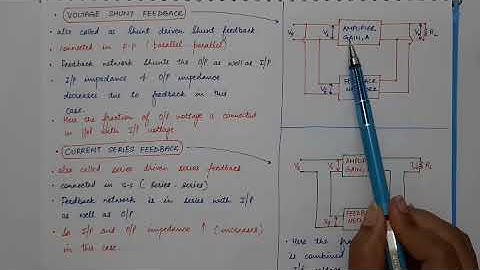 VOLTAGE SHUNT FEEDBACK
• also called as shunt driven shunt feedback
• connected in P-P (parallel parallel)
• Feedback network shunts the O/P as well as I/P
• I/P impedance & O/P impedance
decreases due to feedback in this
case.
• Here the fraction of O/P voltage is connected
in ||el with I/P voltage
• CURRENT SERIES FEEDBACK
• also called series driven series feedback
• connected in S-S (series-series)
• Feedback network is in series with I/P
as well as O/P
• So I/P and O/P impedance ↑ (increases)
in this case.
AMPLIFIER
GAIN, A
RL
FEEDBACK
NETWORK
AMPLIFIER
GAIN,
RL
FEEDBACK
• Here the
is combined
I/P voltage